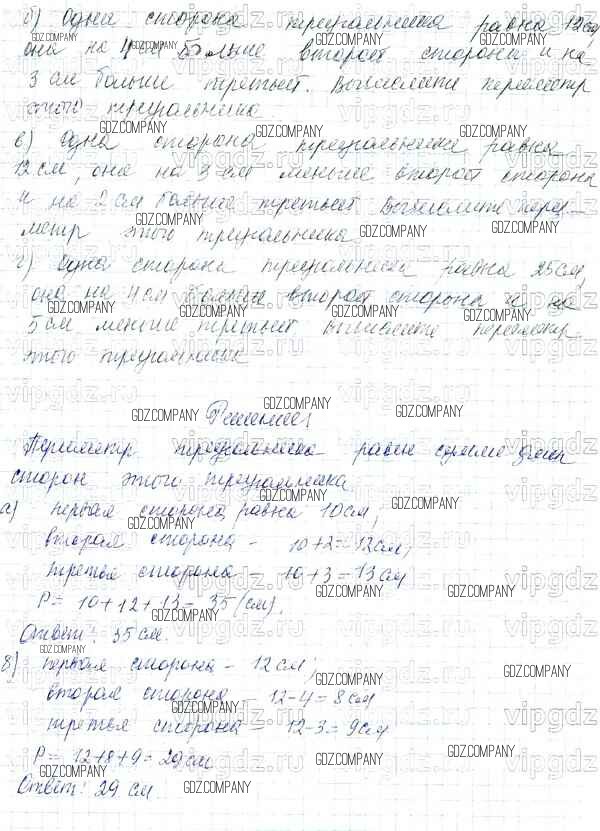 б) одна сторона треугольника равна 12 см,
она на 4 см больше второй стороны и на
3 см больше третьей. Вычислите периметр
этого треугольника
в) одна сторона треугольника равна
12 см, она на 3 см меньше второй стороны
и на 2 см больше третьей Вычислите пери-
метр этого треугольника
г) одна сторона треугольника равна 25 см,
она на 4 см больше второй стороны и на
5 см меньше третьей Вычислите периметр
этого треугольника
Решение:
Периметр треугольника равен сумме длин
сторон этого треугольника
а) первая сторона равна 10 см,
вторая сторона - 10+2=12 см,
третья сторона - 10+3=13 см
P= 10+12+13=35 (см).
Ответ: 35 см.
б) первая сторона - 12 см,
вторая сторона - 12-4=8 см
третья сторона - 12-3=9 см
P= 12+8+9=29 см
Ответ: 29 см.